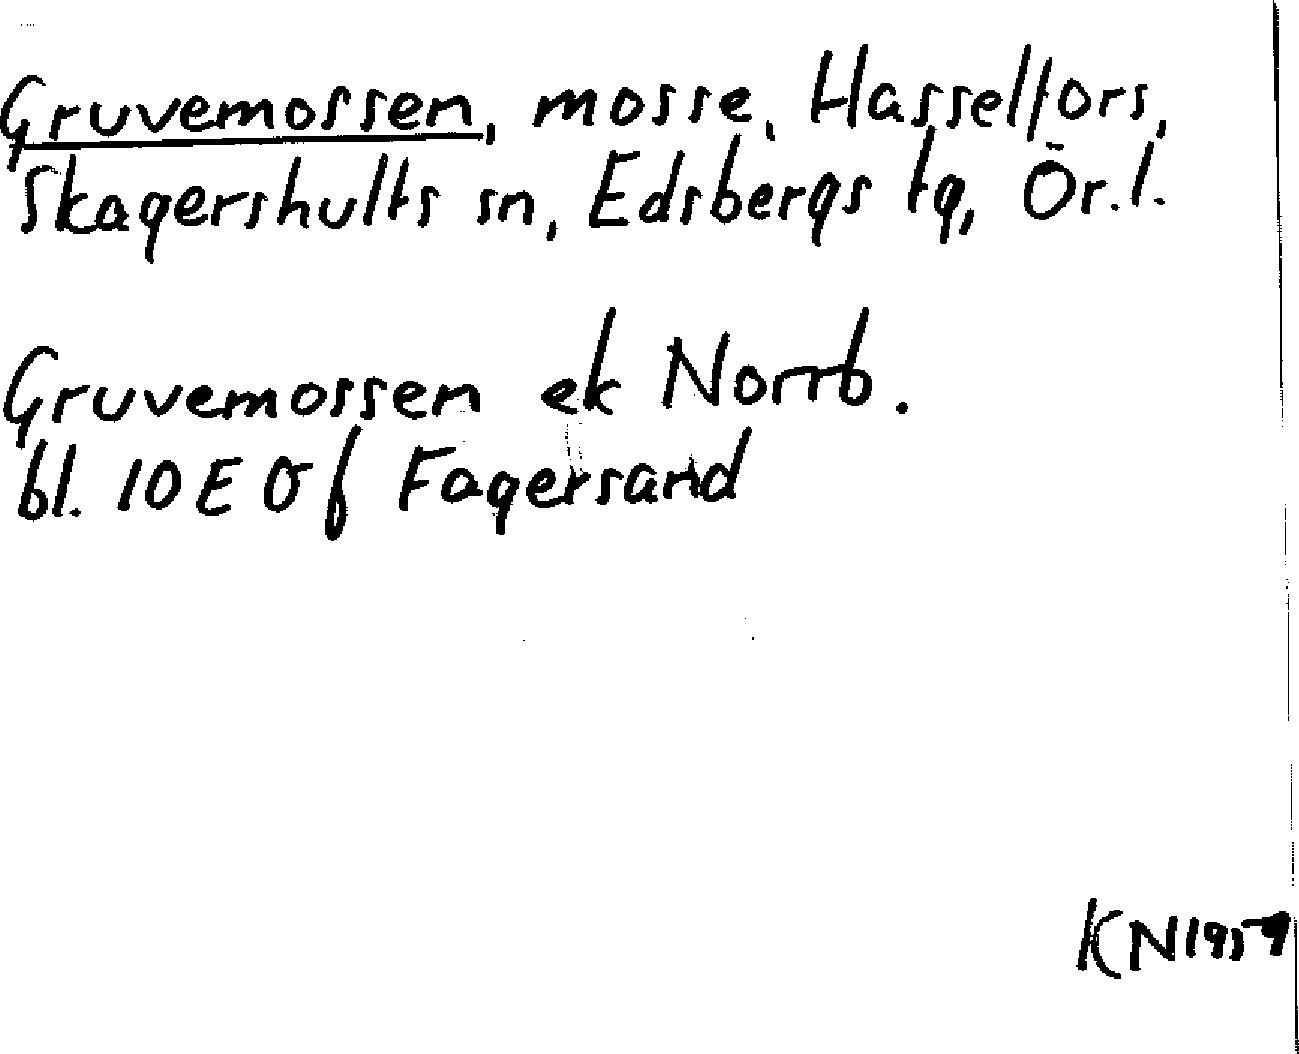 Gruvemossen, mosse, Hasselfors,
Skagershults sn, Edsbergs tg, Ör.l.
Gruvemossen ek Norrb.
bl. 10E 0f Fagersand
KN 1959